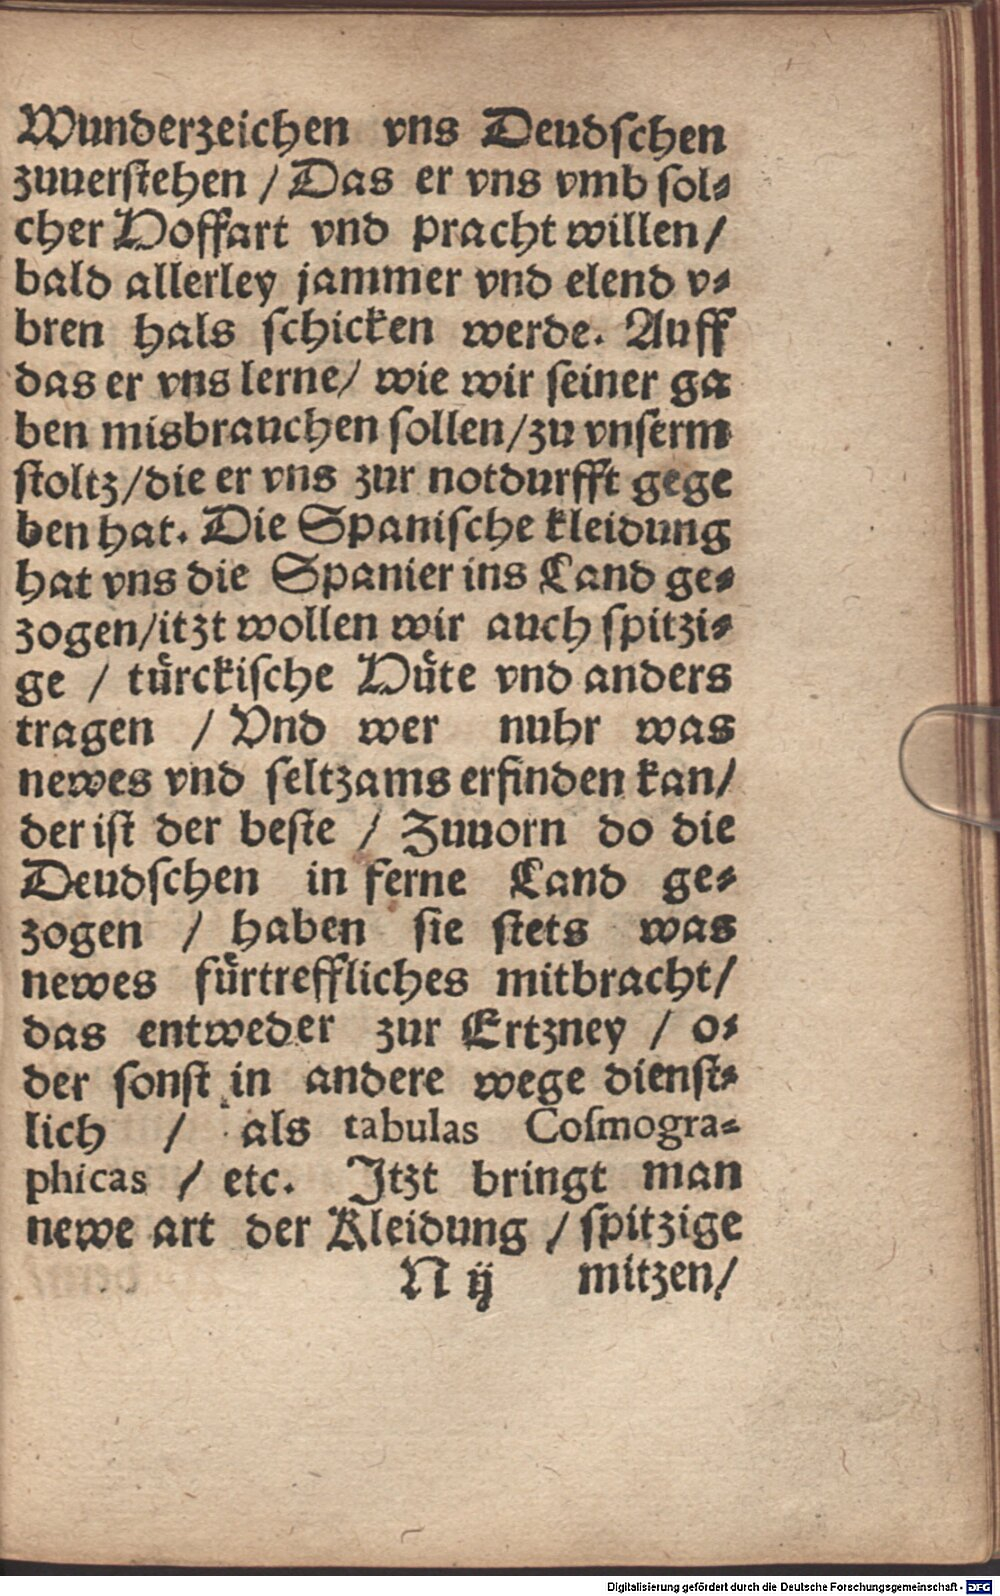 Wunderzeichen vns Deudschen
zuuerstehen / Das er vns vmb sol⸗
cher Hoffart vnd pracht willen /
bald allerley jammer vnd elend v⸗
bren hals schicken werde. Auff
das er vns lerne / wie wir seiner ga
ben misbrauchen sollen / zu vnserm
stoltz / die er vns zur notdurfft gege
ben hat. Die Spanische kleidung
hat vns die Spanier ins Land ge⸗
zogen / itzt wollen wir auch spitzi⸗
ge / tuͤrckische Huͤte vnd anders
tragen / Vnd wer nuhr was
newes vnd seltzams erfinden kan /
der ist der beste / Zuuorn do die
Deudschen in ferne Land ge⸗
zogen / haben sie stets was
newes fuͤrtreffliches mitbracht /
das entweder zur Ertzney / o⸗
der sonst in andere wege dienst⸗
lich / als tabulas Cosmogra⸗
phicas / etc. Itzt bringt man
newe art der Kleidung / spitzige
N ij mitzen /
Digitalisierung gefördert durch die Deutsche Forschungsgemeinschaft - DFG